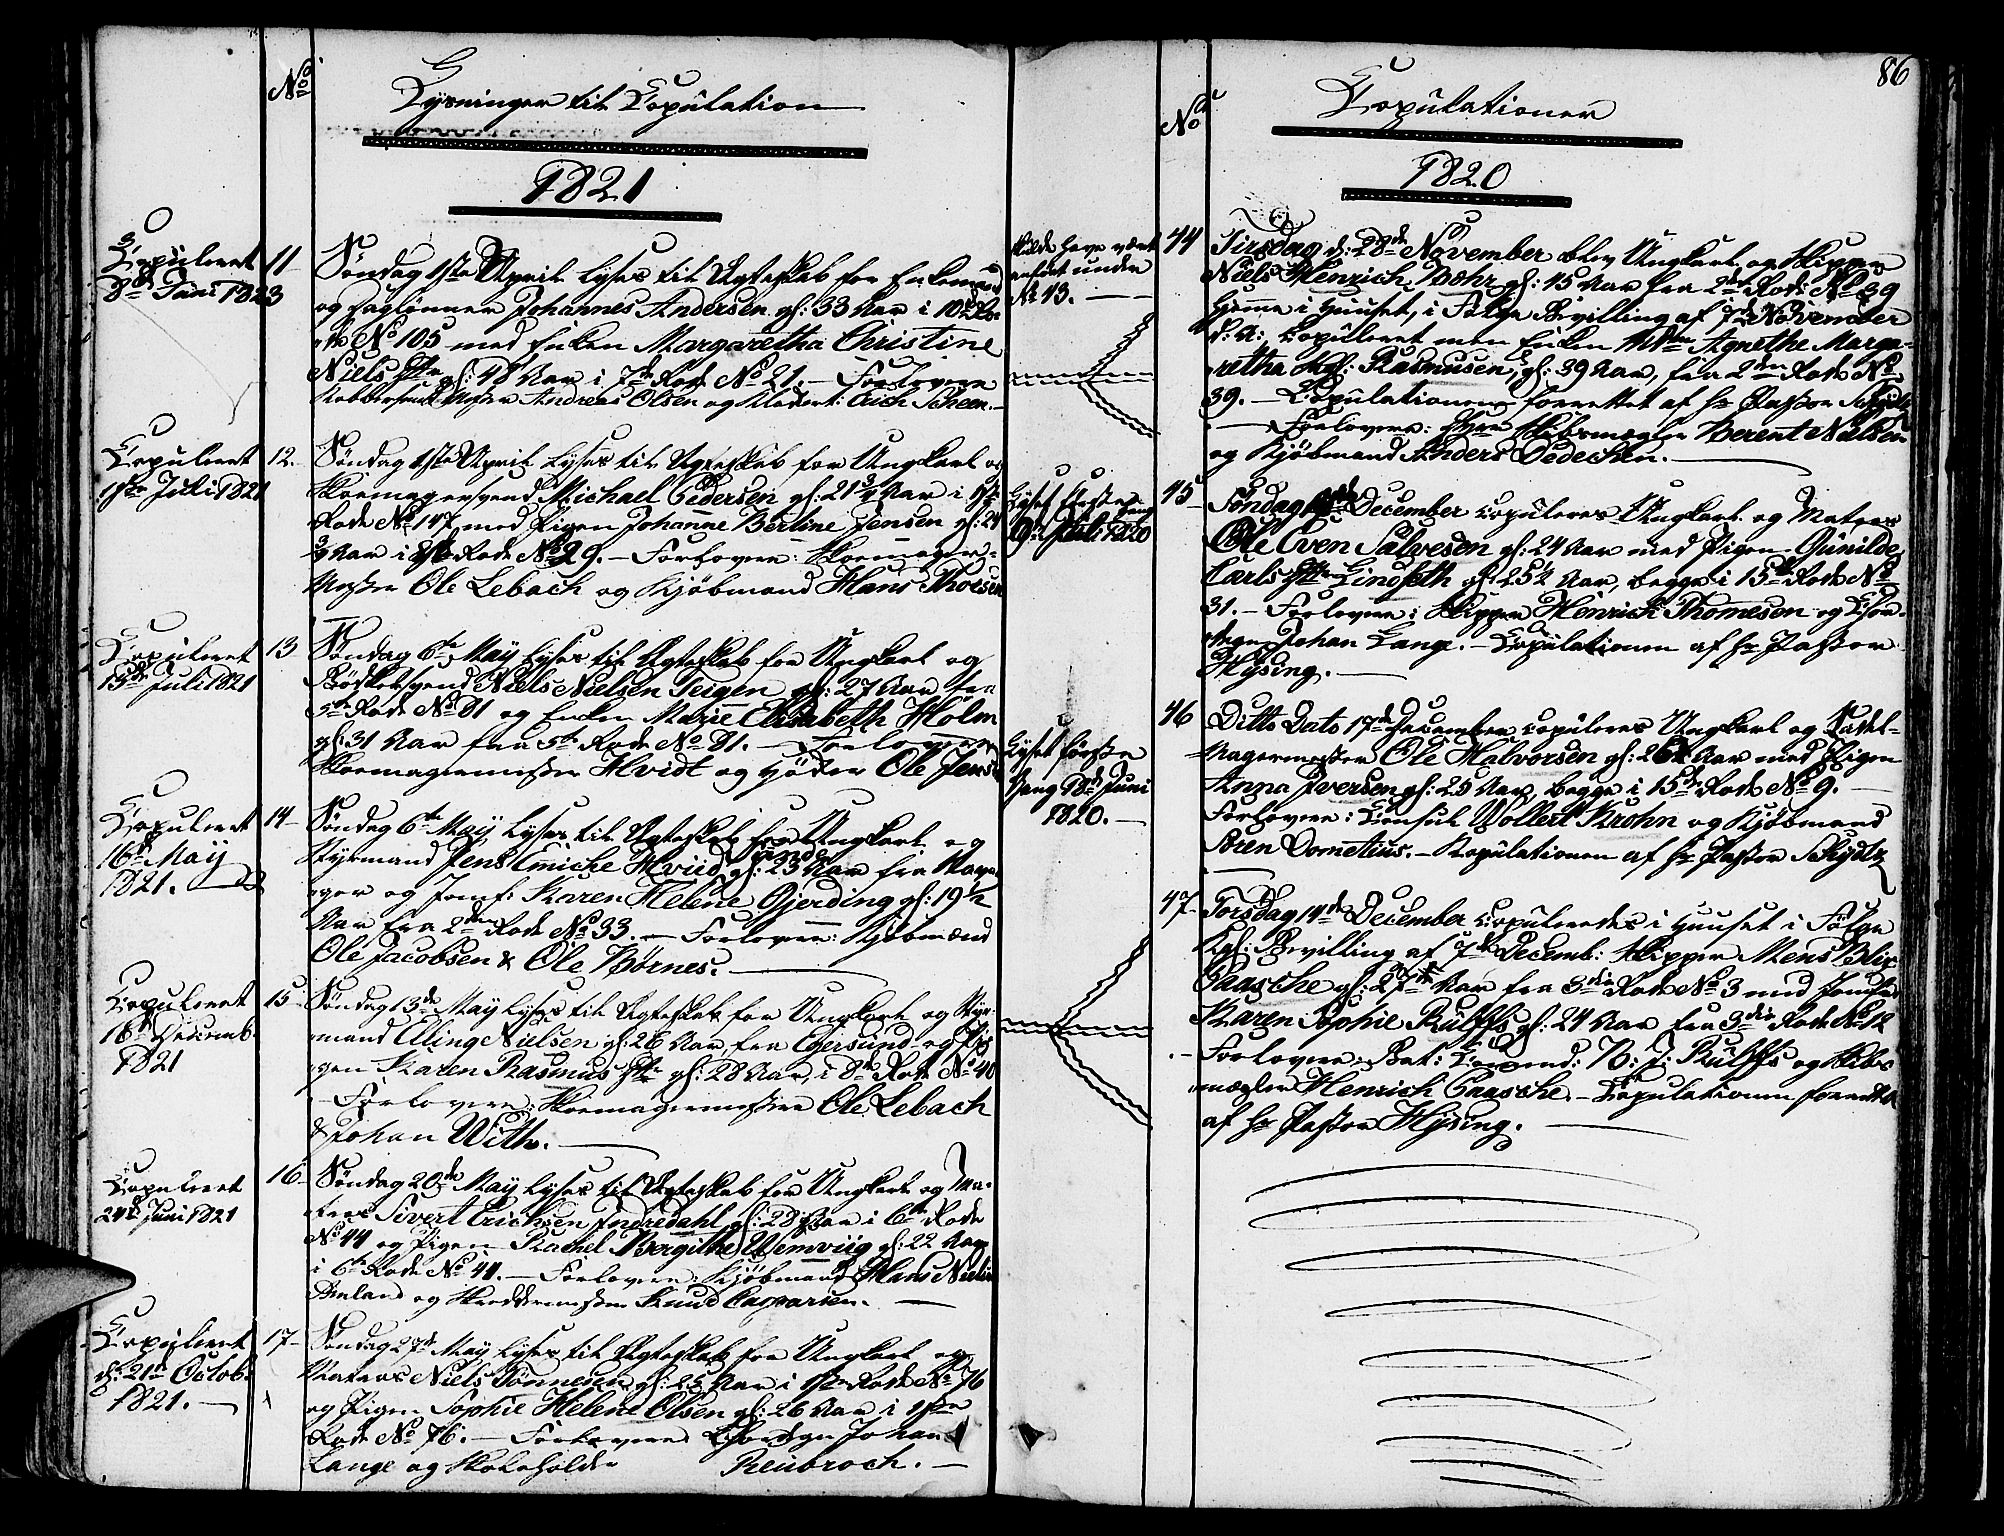 No
Lysninger til Copulation
1821
Copuleret
8de Juni 1823
11
Søndag 1ste April lyses til Ægteskab for Enkemand
og Daglønner Johannes Andersen gl: 33 Aar i 10de Ro-
de No 105 med Enken Margaretha Christine
Niels Dtr gl: 48 Aar i 7de Rode No 21. – Forlovere
Kobbersmed Andreas Olsen og Erich Scheen. –
Copuleret
1ste Juli 1821
12.
Søndag 1ste April lyses til Ægteskab for Ungkarl og
Skomagersvend Michael Pedersen gl: 21 3/4 Aar i 1ste
Rode No 147 med Pigen Johanne Bertine Jensen gl: 24
3/4 Aar i Rode No 29. – Forlovere: Skoemager-
Mester Ole Lebach og Kjøbmand Hans Thorsen
Copuleret
15de Juli 1821
13
Søndag 6te May lyses til Ægteskab for Ungkarl og
Bødkersvend Niels Nielsen Teigen gl: 27 Aar fra
5te Rode No 81 og Enken Marie Elisabeth Holm
gl: 31 Aar fra 5te Rode No 81. – Forlovere
Skoemagermester Hvidt og Ole Jensen
Copuleret
16de May
1821. –
14
Søndag 6te May lyses til Ægteskab for Ungkarl og
Styrmand Jens Emiche Hviid gl: 23 Aar fra
og Jomf: Karen Helene Gjerding gl: 19 1/2
Aar fra 2den Rode No 33. – Forlovere: Kjøbmænd
Ole Jacobsen & Ole Børnes. –
Copuleret
16de Decemb.
1821
15
Søndag 13de May lyses til Ægteskab for Ungkarl og Styr-
mand Elling Nielsen gl: 26 Aar, fra Egersund og Pi-
gen Karen Rasmus Dtr gl: 28 Aar, i 8de Rode No 40
– Forlovere: Skoemagermestere Ole Lebach
& Johan With. –
Copuleret
24de Juni 1821
16
Søndag 20de May lyses til Ægteskab for Ungkarl og Ma-
tros Sivert Erichsen Indredahl gl: 28 Aar i 6te Rode
No 44 og Pigen Rachel Bergithe Wemviig gl: 22 Aar
i 6te Rode No 41. – Forlovere: Kjøbmand Hans Nielsen
og Skreddermester Knud Casparsen. –
Copuleret
d: 21de Octob.
1821. –
17
Søndag 27de May lyses til Ægteskab for Ungkarl og
Matros Niels Tønnesen gl: 25 Aar i 1ste Rode No 76
og Pigen Sophie Helene Olsen gl: 26 Aar i 1ste
Rode No 76. – Forlovere Johan
Lange og Skoleholder Reubroch. –
86
No
Copulationer
1820
skulde have vært
anført under
No 43. –
44
Tirsdag d: 28de November blev Ungkarl og Skipper
Niels Henrich Bøhr gl: 45 Aar fra 2den Rode No 39
hjemme i Huuset, i Følge Bevilling af 7de November
d: A: copuleret med Enken Agnethe Marga-
retha Rasmusen, gl: 39 Aar, fra 2den Rode No
39. – Copulationen forrettet af Hr Pastor Schydtz
– Forlovere: Skibsmægler Berent Nielsen
og Kjøbmand Anders Dedechen. –
Lyset første Gang
9de Juli 1820
45
Søndag December copuleres Ungkarl og Matros
Ole Even Salvesen gl: 24 Aar med Pigen Gunilde
Carls Dtr Lindseth gl: 25 1/2 Aar, begge i 15de Rode No
31. – Forlovere: Skipper Henrich Thomesen og
Johan Lange. – Copulationen af Hr Pastor
Hysing. –
Lyset første
Gang 18de Juni
1820. –
46
Ditto Dato 17de December copuleres Ungkarl og Sadel-
magermester Ole Halvorsen gl: 26 Aar med Pigen
Anna Iversen gl: 25 Aar, begge i 15de Rode No 9. –
Forlovere: Consul Wollert Krohn og Kjøbmand
Søren Dometius. – Kopulationen af Hr Pastor Schydtz
47
Torsdag 14de December copuleredes i Huuset i Følge
Kgl: Bevilling af 7de Decemb: Skipper Mens Blix
Gaasche gl: 27 Aar fra 3die Rode No 3 med Jomfru
Karen Sophie Rulffs gl: 24 Aar fra 3die Rode No 12
– Forlovere: Bat: Comend: Rulffs og Skibs
mægler Henrich Gaasche. – Copulationen forrettet
af Hr Pastor Hysing. –